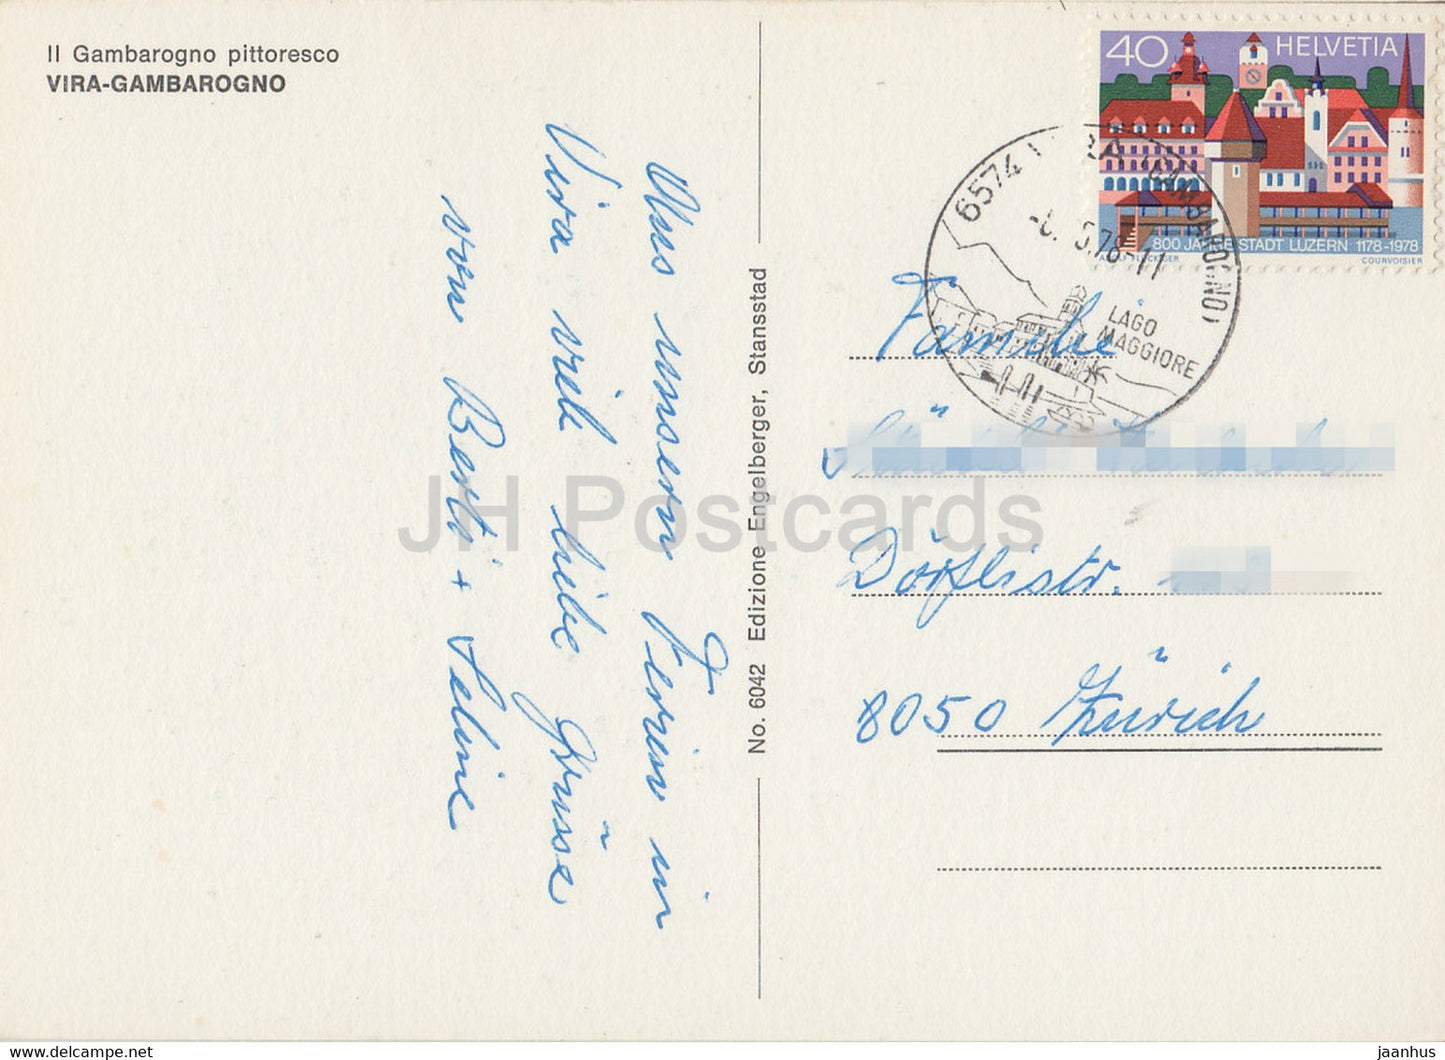 Il Gambarogno pittoresco
VIRA-GAMBAROGNO
Aus unsern Ferien in
Vira viele liebe Grüsse
von Berti + Seline
No. 6042 Edizione Engelberger, Stansstad
40 HELVETIA
800 JAHRE STADT LUZERN 1178-1978
ADOLF FLÜCKIGER COURVOISIER
6574 VIRA (GAMBAROGNO)
LAGO
MAGGIORE
Familie
Dörflistr.
8050 Zürich
JH Postcards
delcampe.net
jaanhus